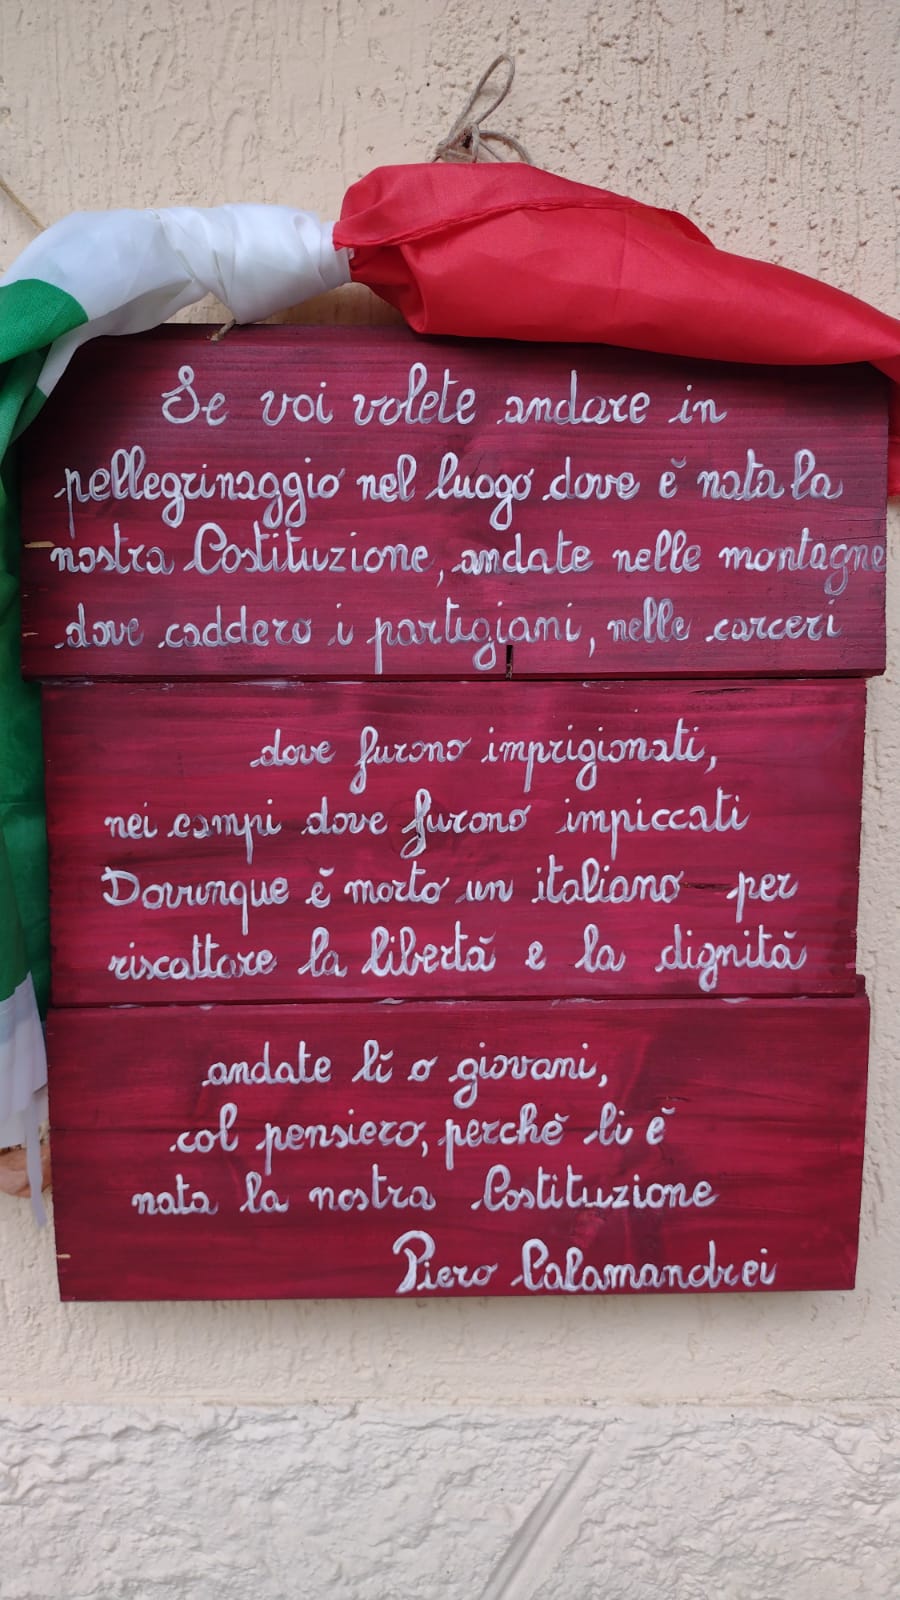 Se voi volete andare in
pellegrinaggio nel luogo dove è nata la
nostra Costituzione, andate nelle montagne
dove caddero i partigiani, nelle carceri
dove furono imprigionati,
nei campi dove furono impiccati
Dovunque è morto un italiano per
riscattare la libertà e la dignità
andate lì o giovani,
col pensiero, perchè li è
nata la nostra Costituzione
Piero Calamandrei